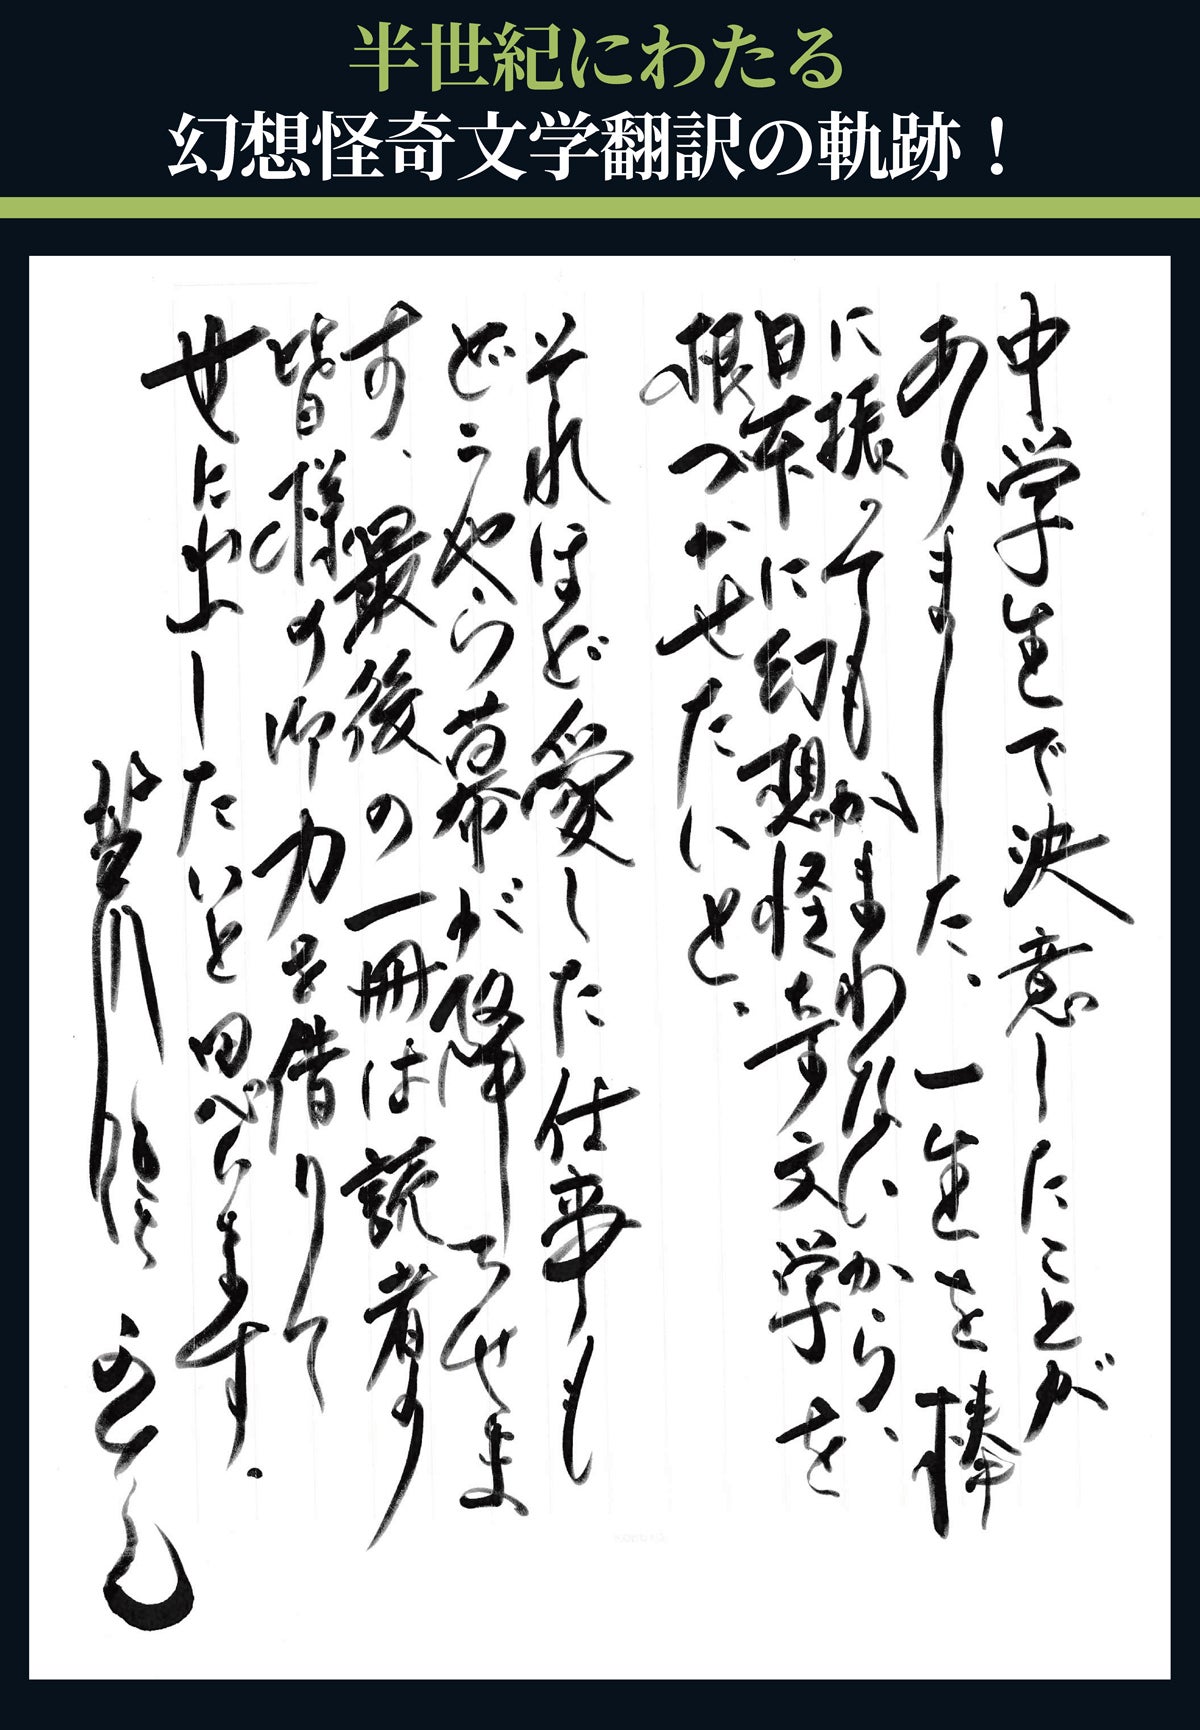 半世紀にわたる
幻想怪奇文学翻訳の軌跡！
中学生で決意したことが
ありました、一生を棒
に振ってもかまわないから、
日本に幻想怪奇文学を
根づかせたいと、
それほど愛した仕事も
どうやら幕が降ろせま
す、最後の一冊は読者の
皆様の御力を借りて
世に出したいと思います。
荒俣 宏